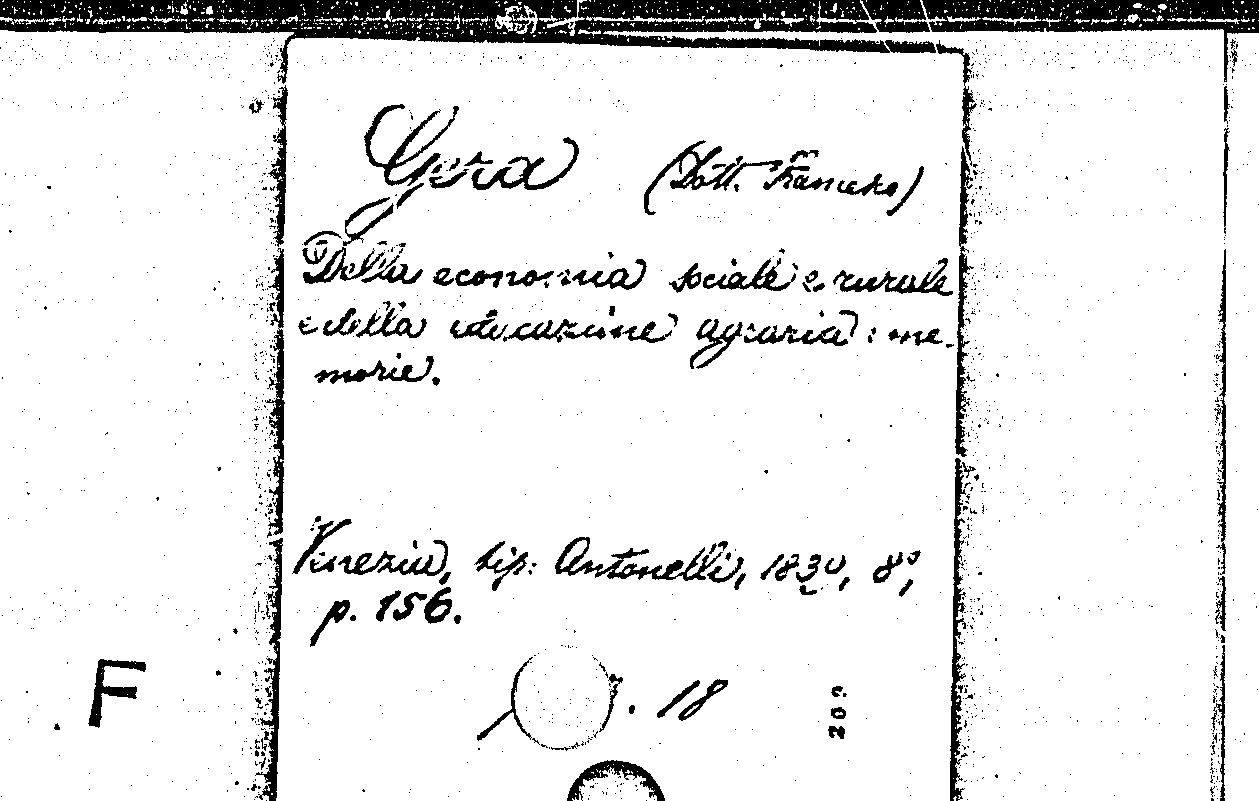 Gera (Dott. Francesco)
Della economia sociale e rurale
e della educazione agraria: me-
morie.
Venezia, tip. Antonelli, 1830, 8º,
p. 156.
. 18
209
F